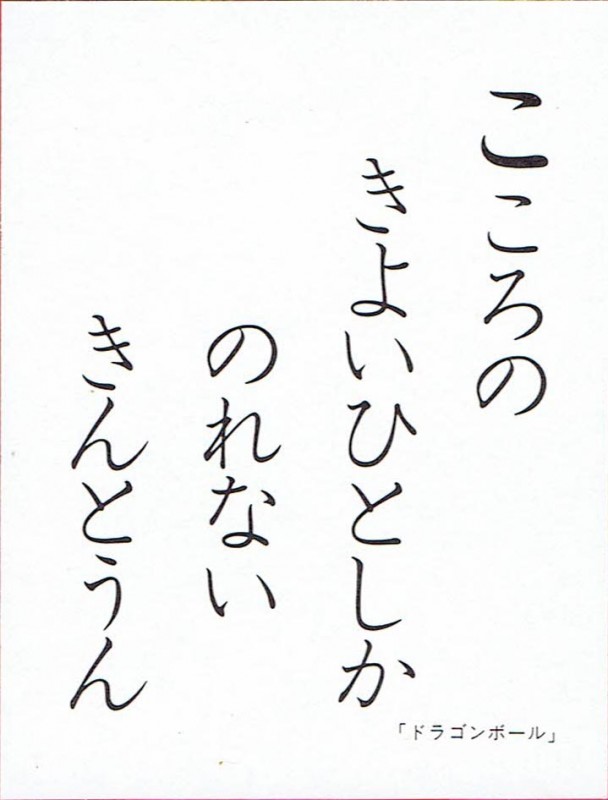 こころの
きよいひとしか
のれない
きんとうん
「ドラゴンボール」